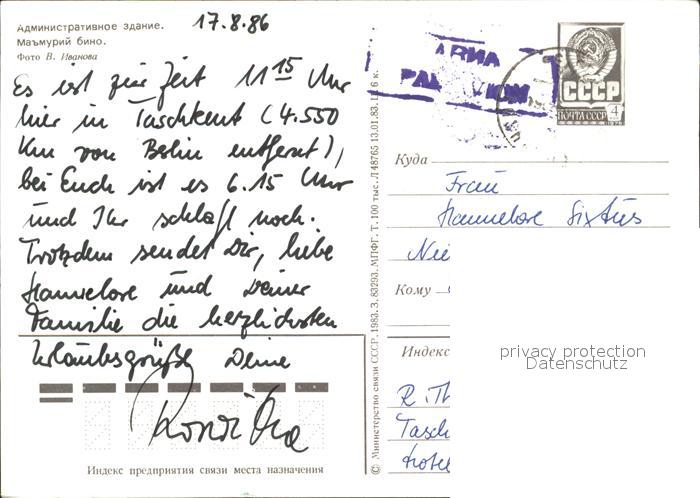 Административное здание.
Маъмурий бино.
Фото В. Иванова
17.8.86
Es ist zur Zeit 11 15 Uhr
hier in Taschkent (4.550
km von Berlin entfernt),
bei Euch ist es 6.15 Uhr
und Ihr schlaft noch.
Trotzdem sendet Dir, liebe
Hannelore und Deiner
Familie die herzlichsten
Urlaubsgrüße Deine
Индекс предприятия связи места назначения
© Министерство связи СССР. 1983. З. 83293. МПФГ. Т. 100 тыс. Л 48765 13.01.83. Ц. 6 к.
АВИА
PAR AVION
СССР
ПОЧТА СССР 4
Куда
Frau
Hannelore Sixtus
Nie
Кому
Индекс
R. Th
Tasch
Hotel
privacy protection
Datenschutz